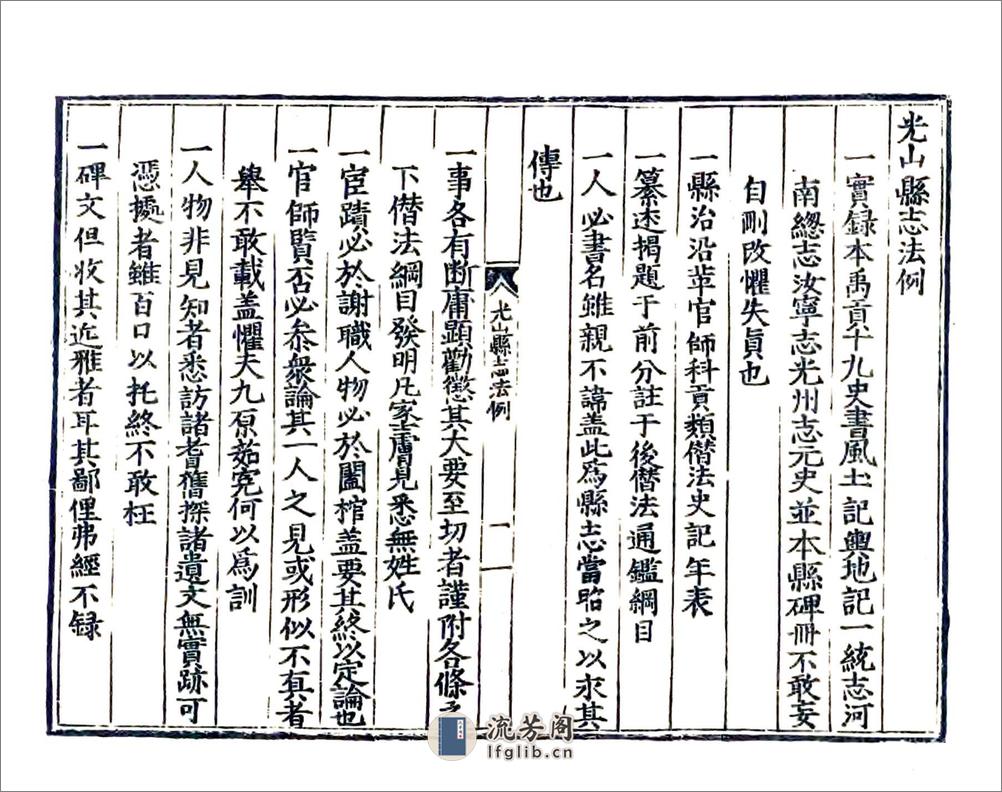 光山縣志法例
一實録本禹貢十九史書風土記輿地記一統志河
南總志汝寧志光州志元史並本縣碑冊不敢妄
自刪改懼失眞也
一縣治沿革官師科貢類僭法史記年表
一纂述揭題于前分註于後僭法通鑑綱目
一人必書名雖親不諱盖此為縣志當昭之以求其
傳也
光山縣志法例
一
一事各有断庸顕勸懲其大要至切者謹附各條之
下僭法綱目發明凡家士膚見悉無姓氏
一宦蹟必於謝職人物必於闔棺盖要其終以定論也
一官師賢否必叅衆論其一人之見或形似不眞者
舉不敢載盖懼夫九原茹寃何以爲訓
一人物非見知者悉訪諸耆舊探諸遺文無實跡可
憑據者雖百口以托終不敢枉
一碑文但收其近雅者耳其鄙俚弗經不録
流芳阁
lfglib.cn